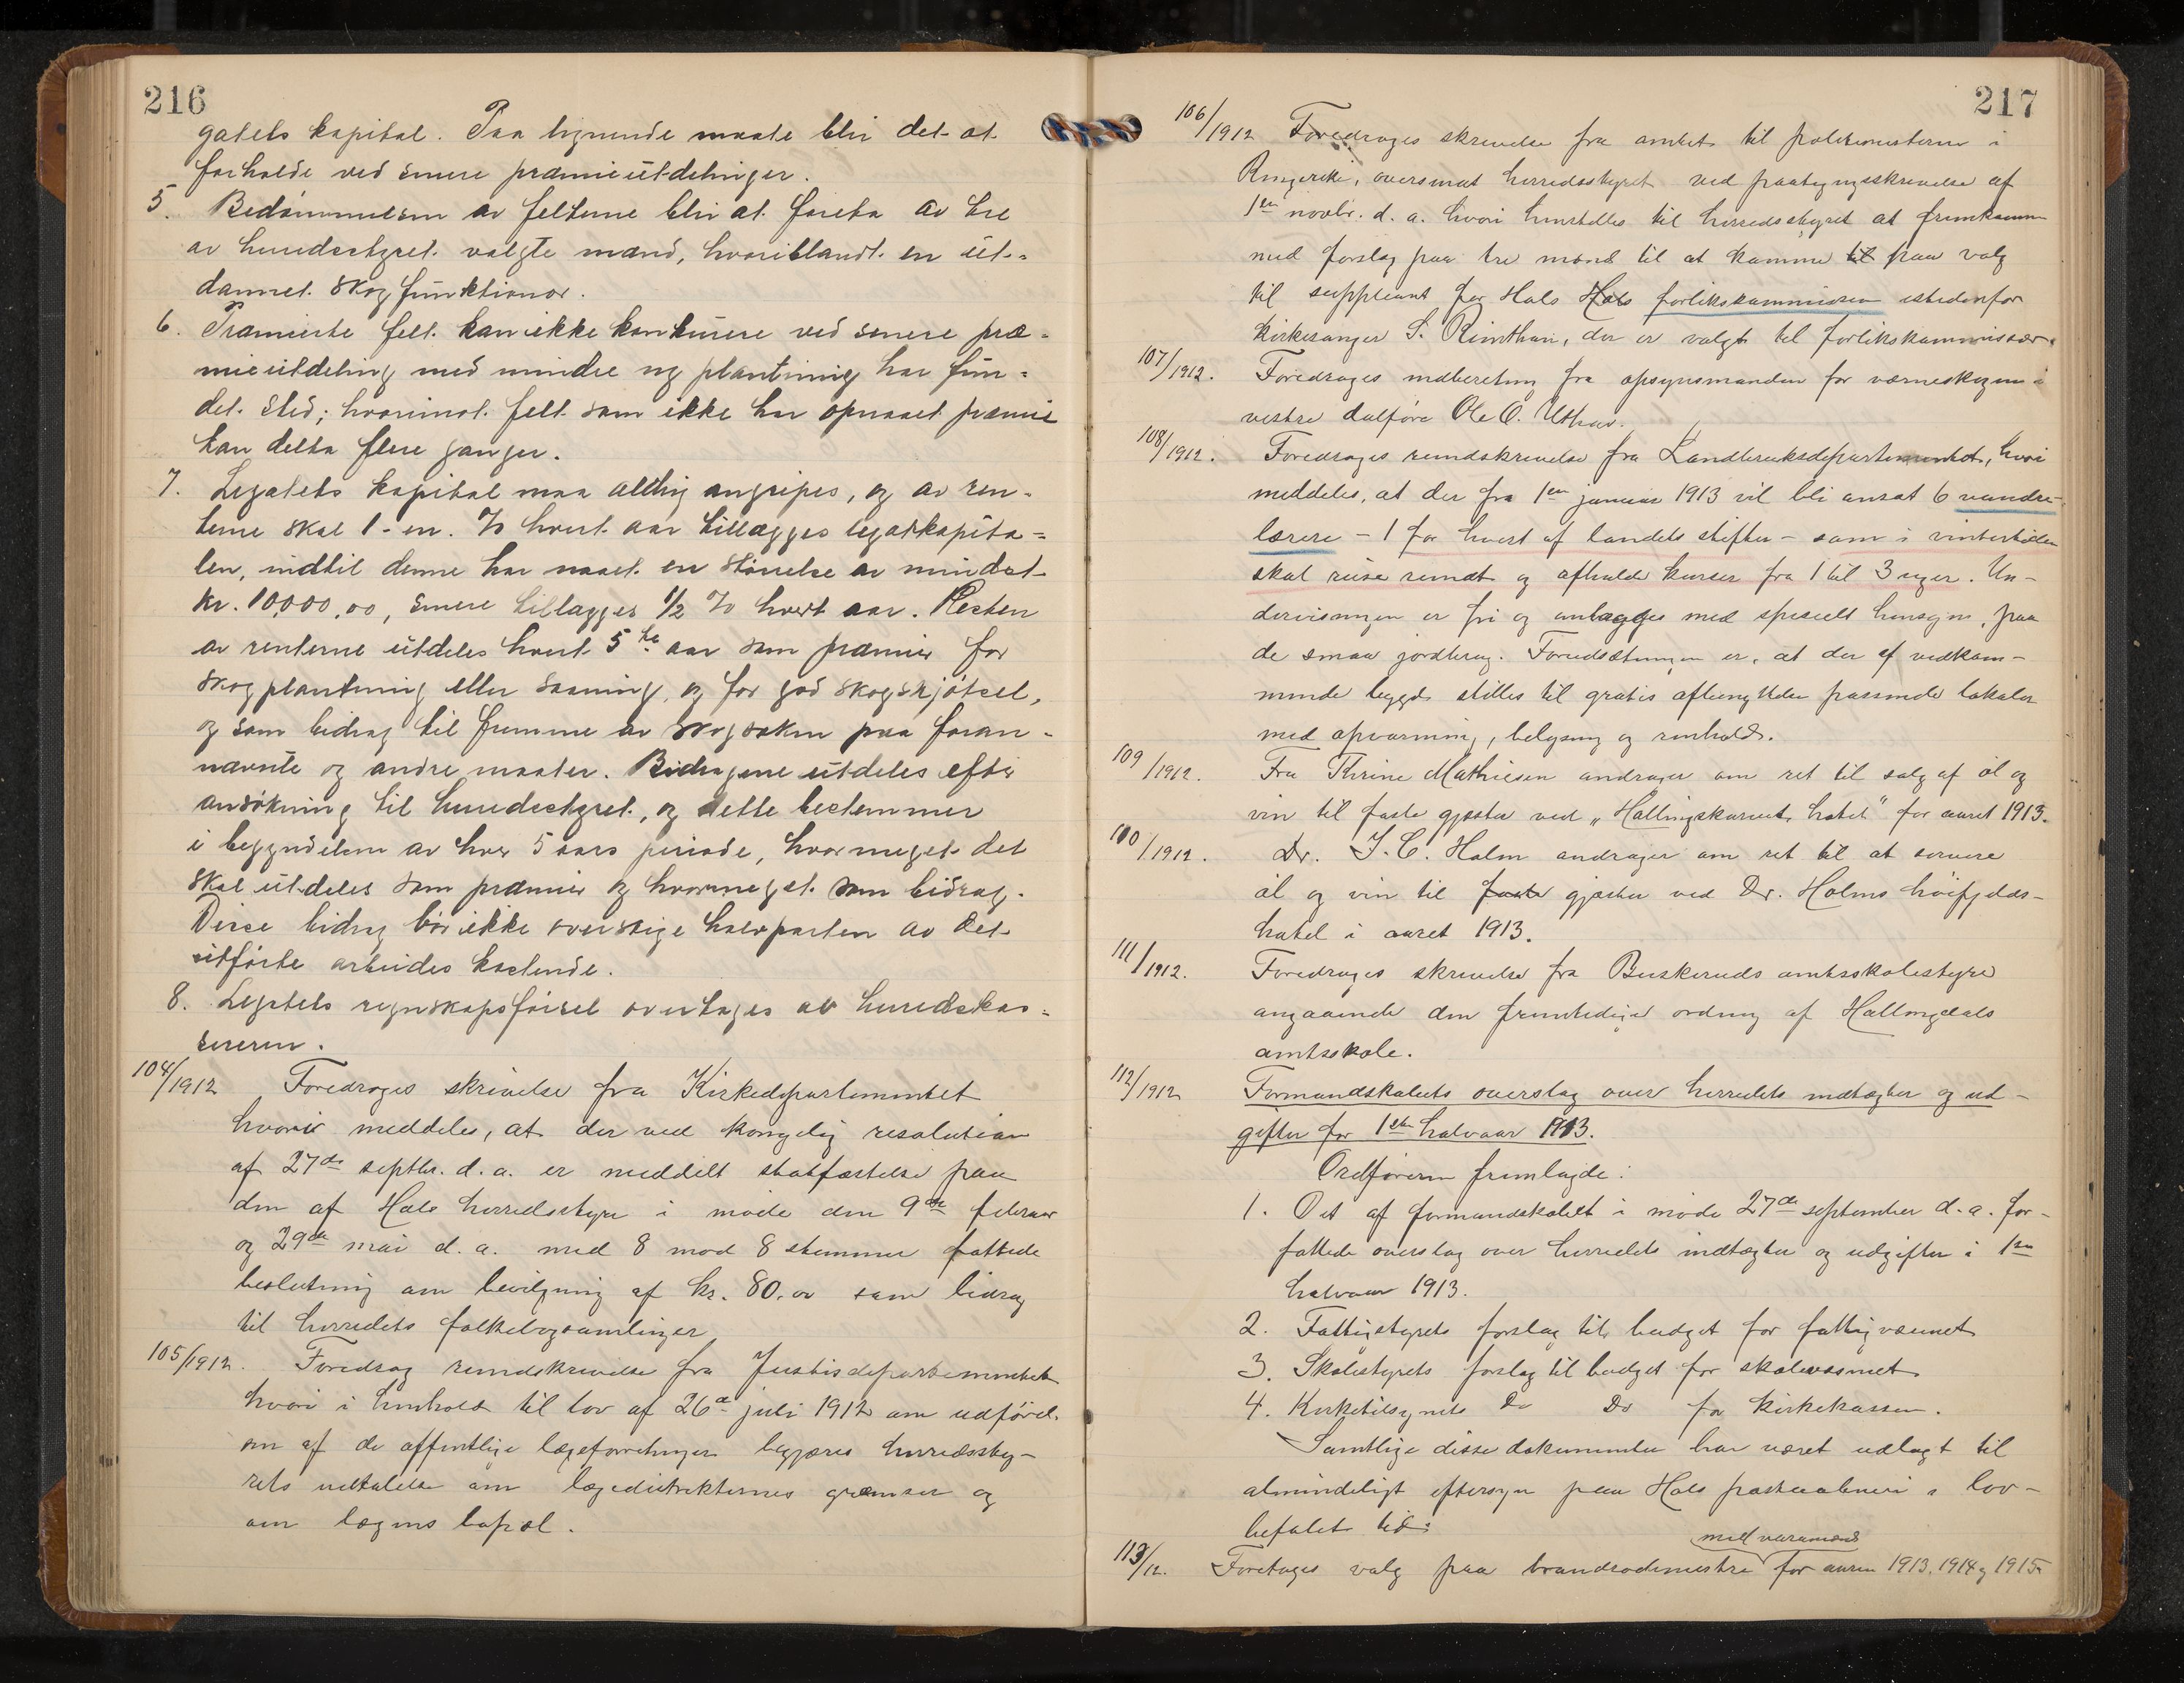 216
gatets kapital. Paa lignende maate blir det at
forholde ved senere præmieutdelinger.
5. Bedømmelsen av felterne blir at foreta av tre
av herredsstyret valgte mænd, hvoriblandt en ut-
dannet skogfunktionær.
6. Præmierte felt kan ikke konkurere ved senere præ-
mieutdeling med mindre ny plantning har fun-
det sted; hvorimot felt som ikke har opnaaet præmie
kan delta flere ganger.
7. Legatets kapital maa aldrig angripes, og av ren-
terne skal 1 - en. % hvert aar tillægges legatkapita-
len, indtil denne har naaet en størrelse av mindst
kr. 10,000.00, senere tillægges 1/2 % hvert aar. Resten
av renterne utdeles hvert 5te aar som præmier for
skogplantning eller saaning, og for god skogskjøtsel,
og som bidrag til fremme av skogsaken paa foran-
nævnte og andre maater. Bidragene utdeles efter
ansøkning til herredsstyret, og dette bestemmer
i begyndelsen av hver 5 aars periode, hvormeget det
skal utdeles som præmier og hvormeget som bidrag.
Disse bidrag bør ikke overstige halvparten av det
utførte arbeides kostende.
8. Legatets regnskapsførsel overtages av herredskas-
sereren.
104/1912 Foredroges skrivelse fra Kirkedepartementet
hvori meddeles, at der ved kongelig resolution
af 27de septbr. d.a. er meddelt stadfæstelse paa
den af Hols herredsstyre i møde den 9de februar
og 29de mai d.a. med 8 mod 8 stemmer fattede
beslutning om bevilgning af kr. 80.00 som bidrag
til herredets folkebogsamlinger
105/1912. Foredrog rundskrivelse fra Justisdepartementet
hvori i henhold til lov af 26de juli 1912 om udførel-
sen af de offentlige lægeforretninger begjæres herredssty-
rets udtalelse om lægedistrikternes grænser og
om lægens bopæl.
217
106/1912 Foredroges skrivelse fra amtet til politimesteren i
Ringerike, oversendt herredsstyret ved paategningsskrivelse af
1ste novbr. d.a. hvori henstilles til herredsstyret at fremkomme
med forslag paa tre mænd til at komme til paa valg
til suppleant for Hols Hols forlikskommission istedenfor
kirkesanger S. , der er valgt til forlikskommissær.
107/1912. Foredroges indberetning fra opsynsmanden for værneskogen i
vestre dalføre Ole O.
108/1912. Foredroges rundskrivelse fra Landbruksdepartementet, hvori
meddeles, at der fra 1ste januar 1913 vil bli ansat 6 vandre-
lærere - 1 for hvert af landets stifter - som i vintertiden
skal reise rundt og afholde kurser fra 1 til 3 uger. Un-
dervisningen er fri og anlægges med specielt hensyn paa
de smaa jordbrug. Forudsætningen er, at der af vedkom-
mende bygd stilles til gratis afbenyttelse passende lokaler
med opvarming, belysning og renhold.
109/1912. Fru Thrine Mathiesen andrager om ret til salg af øl og
vin til faste gjæster ved „Hallingskarvet hotel" for aaret 1913.
100/1912. Dr. I. C. Holm andrager om ret til at servere
øl og vin til faste gjæster ved Dr. Holms høifjelds-
hotel i aaret 1913.
111/1912. Foredroges skrivelse fra Buskeruds amtsskolestyre
angaaende den fremtidige ordning af Hallingdals
amtsskole.
112/1912 Formandskabets overslag over herredets indtægter og ud-
gifter for 1ste halvaar 1913.
Ordføreren fremlagde:
1. Det af formandskabet i møde 27de september d.a. for-
fattede overslag over herredets indtægter og udgifter i 1ste
halvaar 1913.
2. Fattigstyrets forslag til budget for fattigvæsenet
3. Skolestyrets forslag til budget for skolevæsenet
4. Kirketilsynets Do Do for kirkekassen.
Samtlige disse dokumenter har været udlagt til
almindeligt eftersyn paa Hols postaabneri i lov-
befalet tid.
med varamænd
113/12. Foretages valg paa brandrodemestre for aarene 1913, 1914 og 1915.